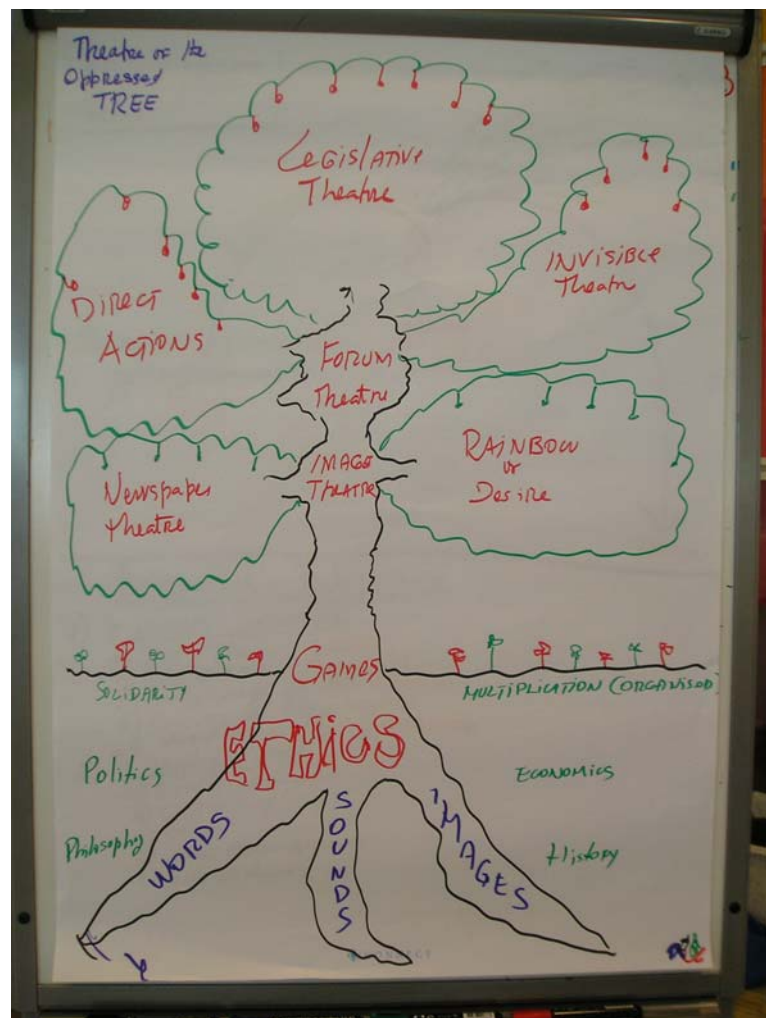 Theatre of the
Oppressed
TREE
Legislative
Theatre
INVISIBLE
Theatre
DIRECT
ACTIONS
FORUM
Theatre
IMAGE
THEATRE
Newspaper
theatre
RAINBOW
of
Desire
GAMES
SOLIDARITY
MULTIPLICATION (ORGANISED)
ETHICS
Politics
ECONOMICS
Philosophy
History
WORDS
SOUNDS
IMAGES